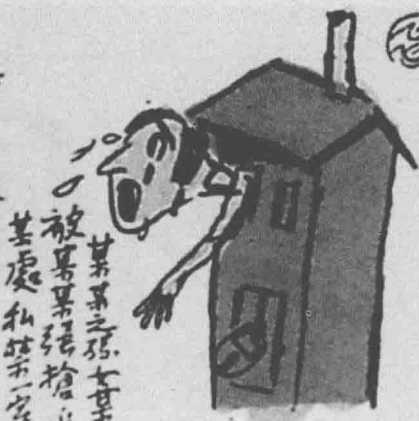 某某之孫女某
被某某强搶
某處私禁一室